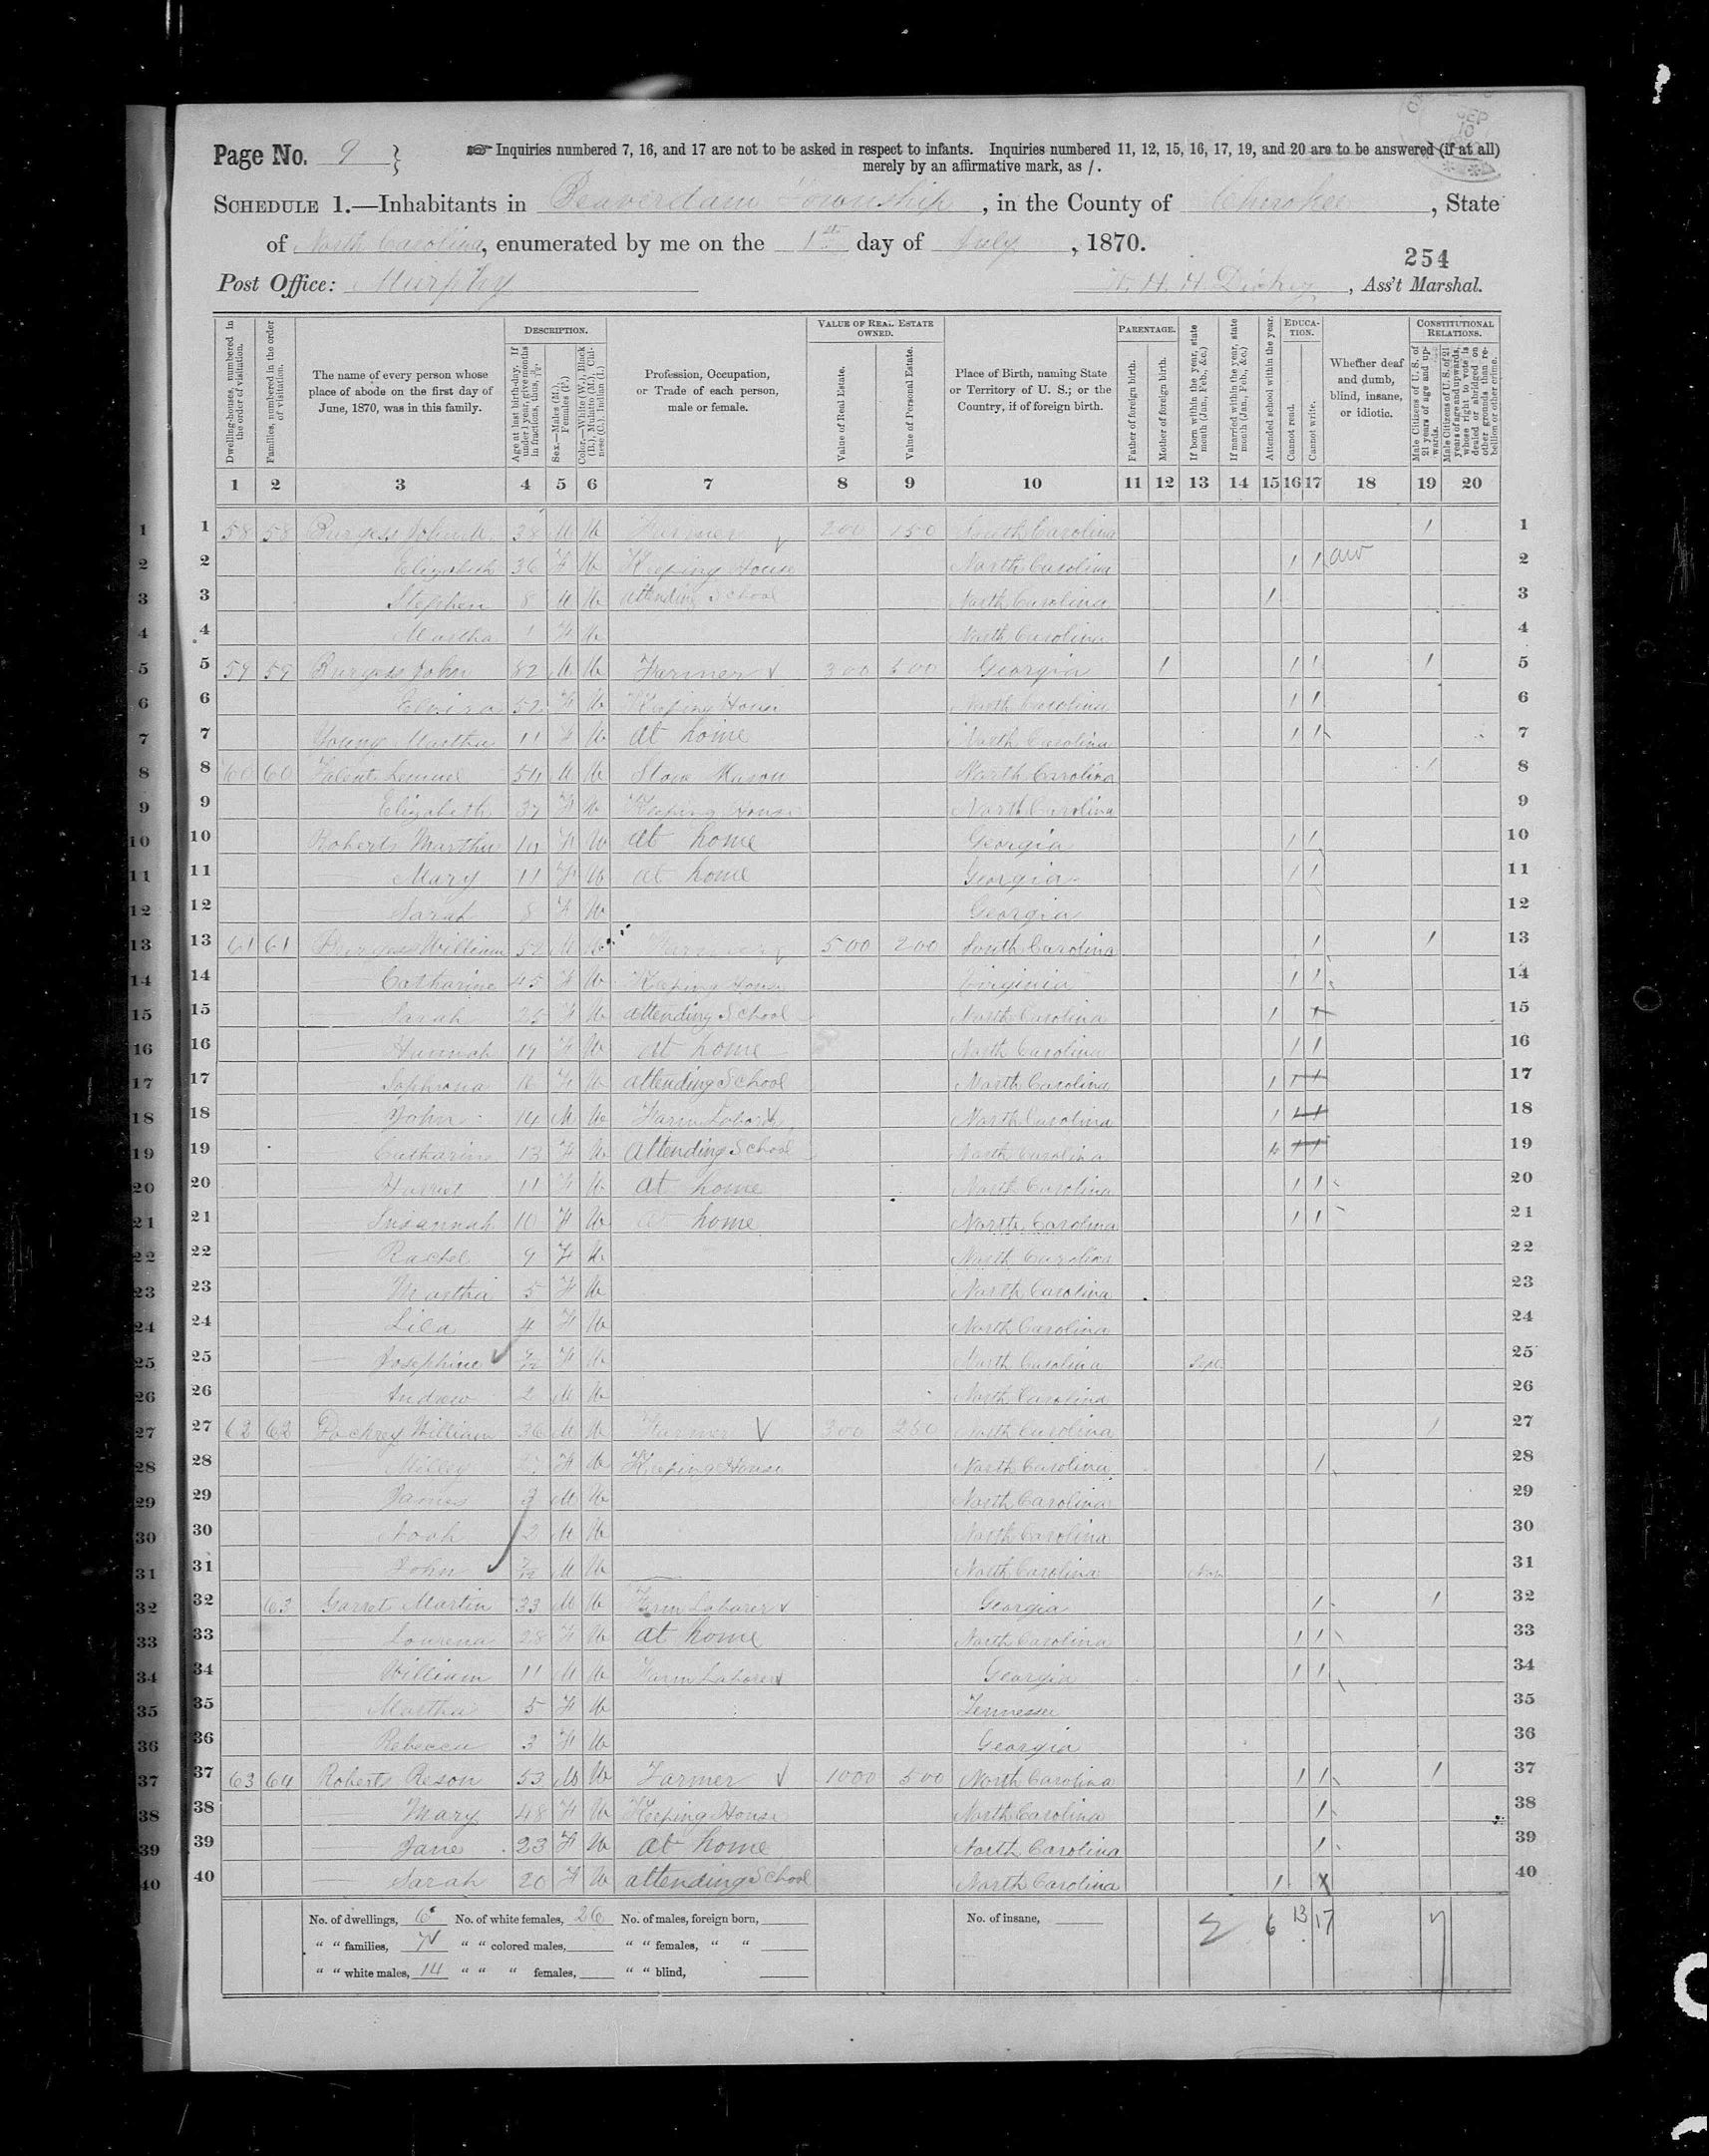 Page No. 9
☞ Inquiries numbered 7, 16, and 17 are not to be asked in respect to infants. Inquiries numbered 11, 12, 15, 16, 17, 19, and 20 are to be answered (if at all)
merely by an affirmative mark, as /.
SCHEDULE 1.—Inhabitants in Beaverdam Township, in the County of Cherokee, State
of North Carolina, enumerated by me on the 1st day of July, 1870.
254
Post Office: Murphy W. H. H. Dickey, Ass't Marshal.
Dwelling-houses, numbered in the order of visitation.
Families, numbered in the order of visitation.
The name of every person whose place of abode on the first day of June, 1870, was in this family.
DESCRIPTION.
Age at last birth-day. If under 1 year, give months in fractions, thus, 3/12.
Sex.—Males (M.), Females (F.)
Color.—White (W.), Black (B.), Mulatto (M.), Chinese (C.), Indian (I.)
Profession, Occupation, or Trade of each person, male or female.
VALUE OF REAL ESTATE OWNED.
Value of Real Estate.
Value of Personal Estate.
Place of Birth, naming State or Territory of U. S.; or the Country, if of foreign birth.
PARENTAGE.
Father of foreign birth.
Mother of foreign birth.
If born within the year, state month (Jan., Feb., &c.)
If married within the year, state month (Jan., Feb., &c.)
Attended school within the year.
EDUCATION.
Cannot read.
Cannot write.
Whether deaf and dumb, blind, insane, or idiotic.
CONSTITUTIONAL RELATIONS.
Male Citizens of U. S. of 21 years of age and upwards.
Male Citizens of U. S. of 21 years of age and upwards, whose right to vote is denied or abridged on other grounds than rebellion or other crime.
1 2 3 4 5 6 7 8 9 10 11 12 13 14 15 16 17 18 19 20
1 58 58 Burgess 38 M W Farmer 200 150 South Carolina / 1
2 Elizabeth 36 F W Keeping House North Carolina / / 2
3 Stephen 8 M W attending School North Carolina / 3
4 Martha 1 F W North Carolina 4
5 59 59 Burgess John 82 M W Farmer 300 500 Georgia / / / / 5
6 Elvira 52 F W Keeping House North Carolina / / 6
7 Young Martha 11 F W at home North Carolina / / 7
8 60 60 Lemuel 54 M W Stone Mason North Carolina / 8
9 Elizabeth 37 F W Keeping House North Carolina 9
10 Roberts Martha F W at home Georgia / / 10
11 Mary 11 F W at home Georgia / / 11
12 Sarah 8 F W Georgia 12
13 61 61 Burgess William 52 M W Farmer 500 200 South Carolina / / 13
14 Catharine 45 F W Keeping House Virginia / / 14
15 Sarah F W attending School North Carolina / / 15
16 Hannah 19 F W at home North Carolina / / 16
17 Sophrona 16 F W attending School North Carolina / / / 17
18 John 14 M W Farm Laborer North Carolina / / / 18
19 Catharine 13 F W attending School North Carolina / / / 19
20 Harriet 11 F W at home North Carolina / / 20
21 Susannah 10 F W at home North Carolina / / 21
22 Rachel 9 F W North Carolina 22
23 Martha 5 F W North Carolina 23
24 Lila 4 F W North Carolina 24
25 Josephine F W North Carolina Sept 25
26 Andrew 2 M W North Carolina 26
27 62 62 Dockrey William 36 M W Farmer 300 250 North Carolina / 27
28 F W Keeping House North Carolina / 28
29 James M W North Carolina 29
30 Noah 2 M W North Carolina 30
31 John M W North Carolina Nov 31
32 63 Garret Martin 33 M W Farm Laborer Georgia / / 32
33 Lourena 28 F W at home North Carolina / / 33
34 William 11 M W Farm Laborer Georgia / / 34
35 Martha 5 F W Tennessee 35
36 Rebecca 3 F W Georgia 36
37 63 64 Roberts Reson 53 M W Farmer 1000 500 North Carolina / / / 37
38 Mary 48 F W Keeping House North Carolina / 38
39 Jane 23 F W at home North Carolina / 39
40 Sarah 20 F W attending School North Carolina / X 40
No. of dwellings, 6 No. of white females, 26 No. of males, foreign born, No. of insane, 2 6 13 17 7
" " families, 7 " " colored males, " " females, " "
" " white males, 14 " " " females, " " blind,